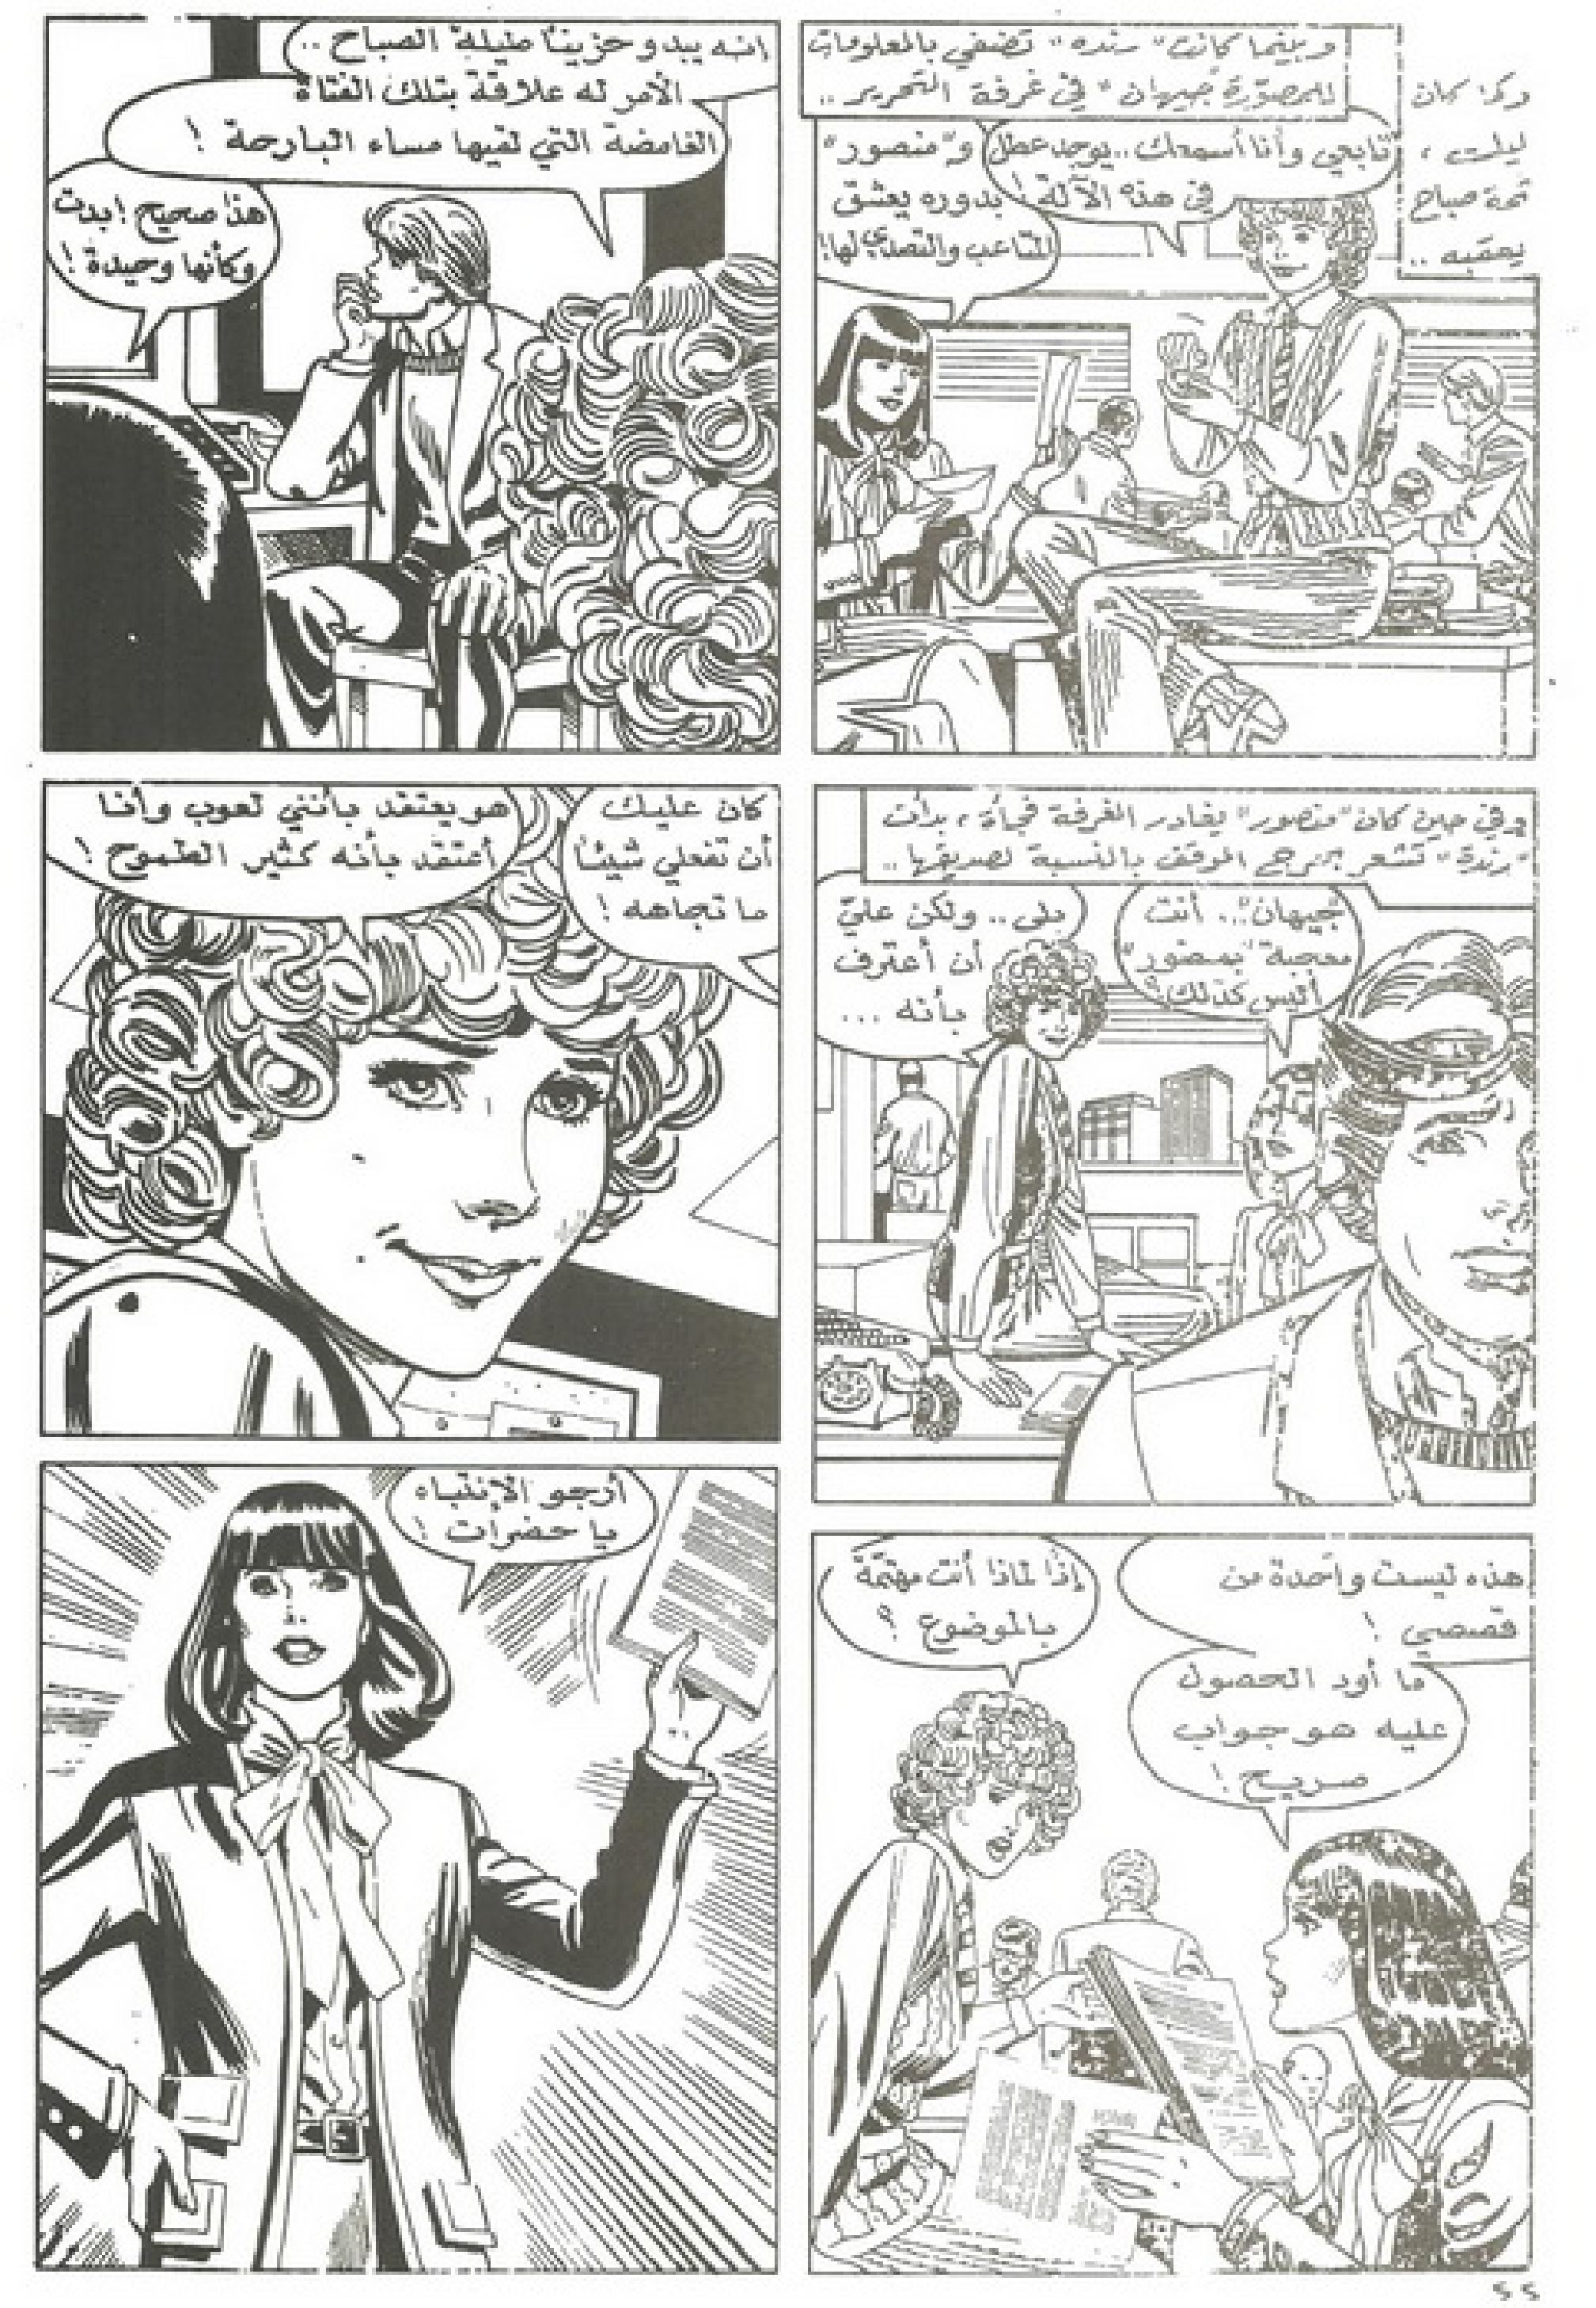 وكما كان
ليلت ،
ثمة صباح
يعقبه ..
وبينما كانت "رنده" تضفي بالمعلومات
للمصوّرة "جيهان" في غرفة التحرير ..
تابعي وأنا أسمعك .. يوجد عطل
في هذه الآلة !
و "منصور"
بدوره يعشق
المتاعب والتصدي لها !
انه يبدو حزيناً طيلة الصباح ..
الأمر له علاقة بتلك الفتاة
الغامضة التي لقيها مساء البارحة !
هذا صحيح ! بدت
وكأنها وحيدة !
وفي حين كان "منصور" يغادر الغرفة فجأة ، بدأت
"رندة" تشعر بحرج الموقف بالنسبة لصديقها ..
"جيهان" .. أنت
معجبة "بمنصور"
أليس كذلك ؟
بلى .. ولكن عليّ
أن أعترف
بأنه ...
كان عليك
أن تفعلي شيئاً
ما تجاهه !
هو يعتقد بأنني لعوب وأنا
أعتقد بأنه كثير الطموح !
هذه ليست واحدة من
قصصي !
ما أود الحصول
عليه هو جواب
صريح !
إذاً لماذا أنت مهتمّة
بالموضوع ؟
أرجو الإنتباه
يا حضرات !